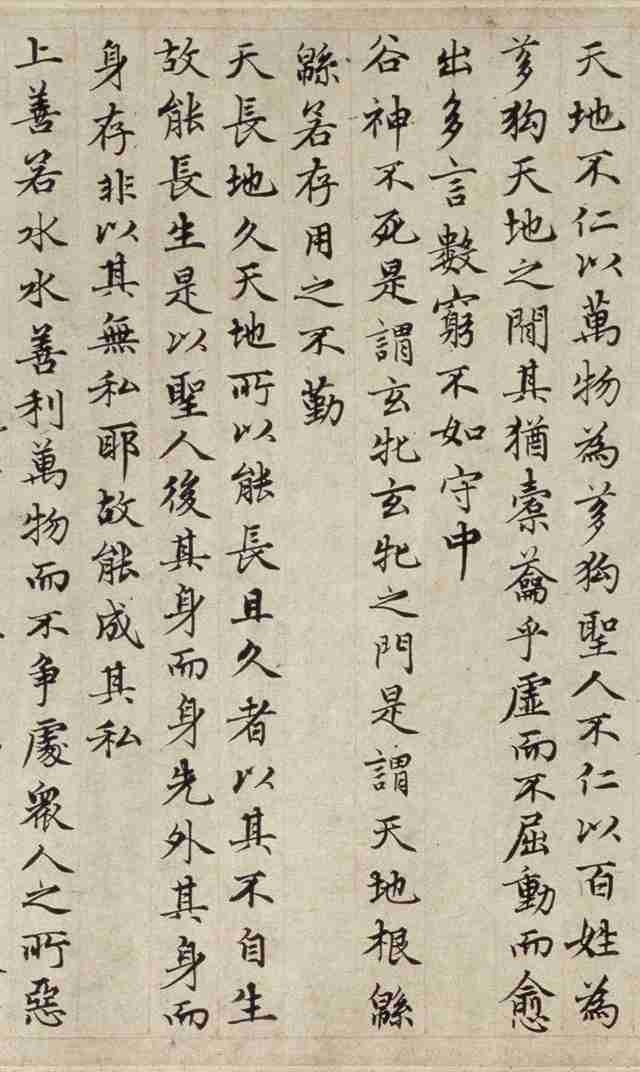 天地不仁以萬物為芻狗聖人不仁以百姓為
芻狗天地之間其猶橐籥乎虛而不屈動而愈
出多言數窮不如守中
谷神不死是謂玄牝玄牝之門是謂天地根緜
緜若存用之不勤
天長地久天地所以能長且久者以其不自生
故能長生是以聖人後其身而身先外其身而
身存非以其無私耶故能成其私
上善若水水善利萬物而不争處衆人之所惡